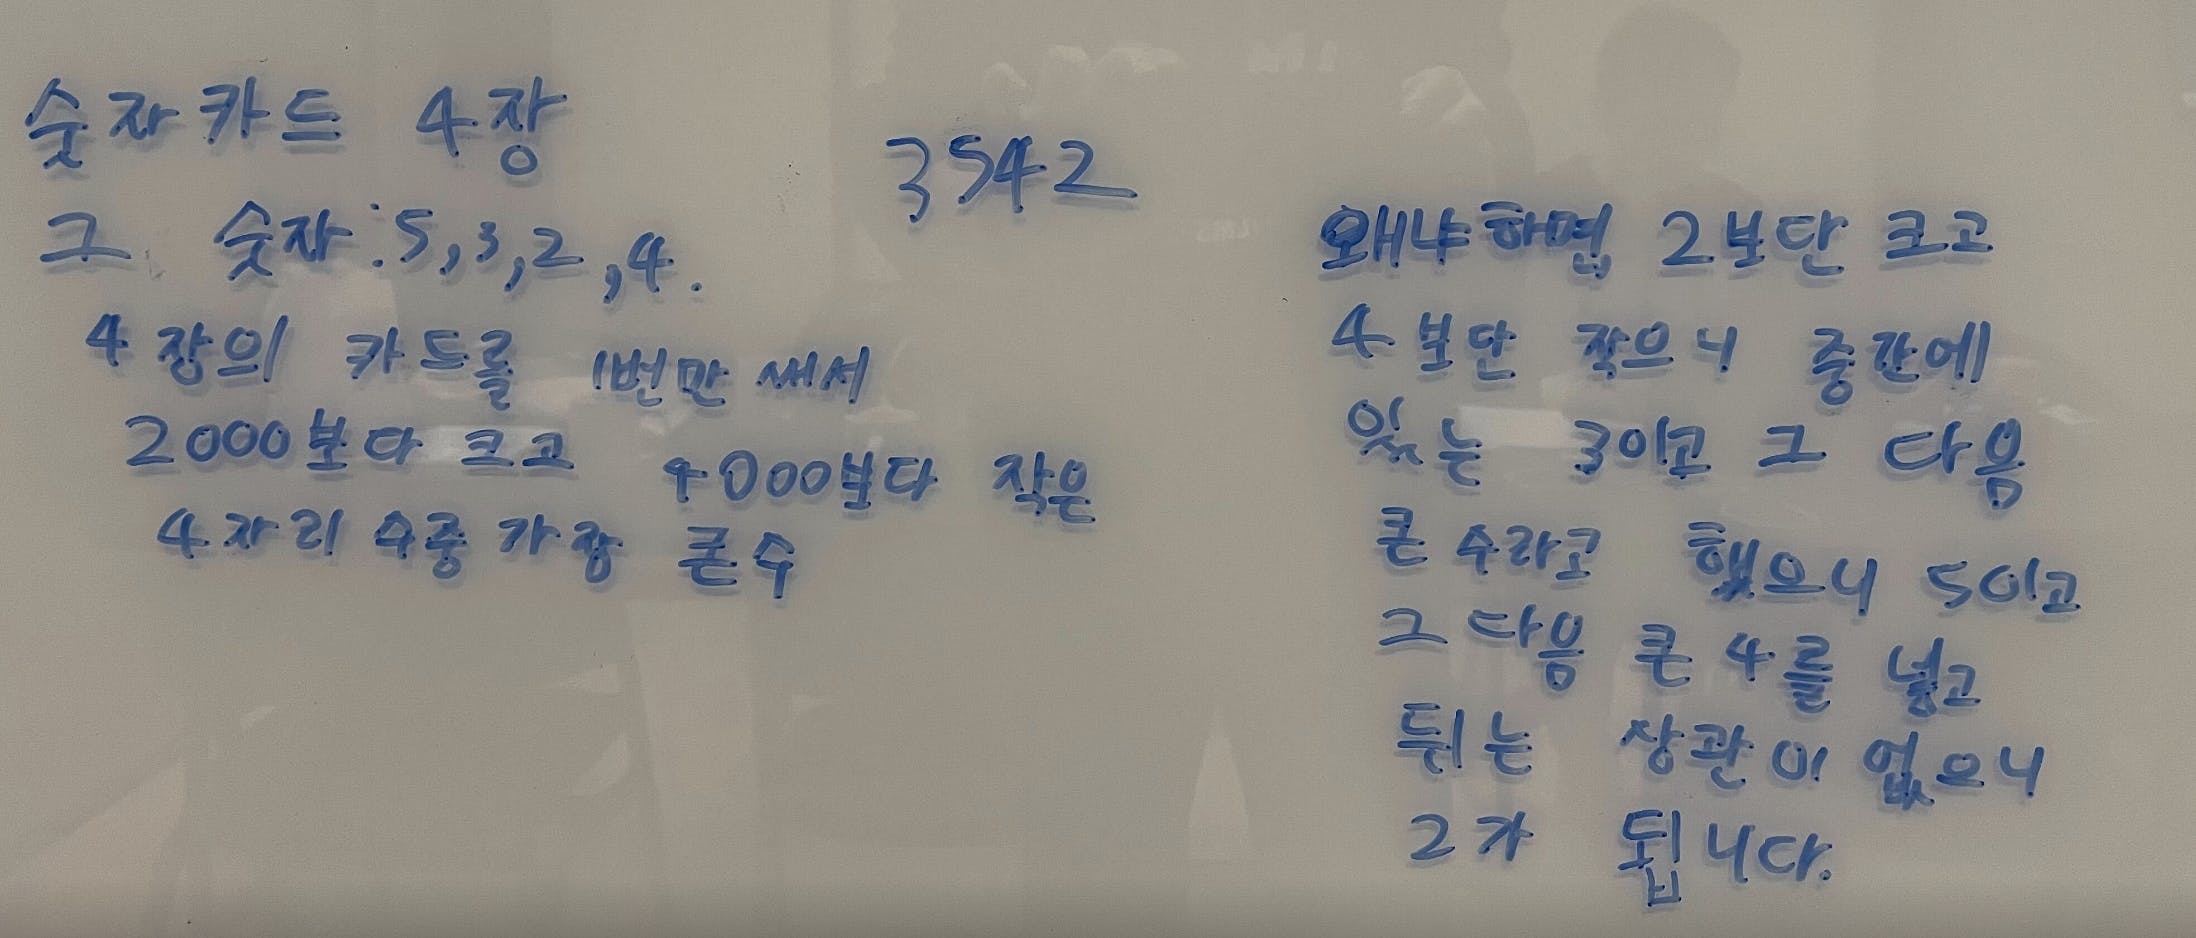 숫자카드 4장
그 숫자:5,3,2,4.
4장의 카드를 1번만 써서
2000보다 크고 4000보다 작은
4자리 수중 가장 큰수
3542
왜냐하면 2보단 크고
4보단 작으니 중간에
있는 3이고 그 다음
큰 수라고 했으니 5이고
그 다음 큰 4를 넣고
뒤는 상관이 없으니
2가 됩니다.